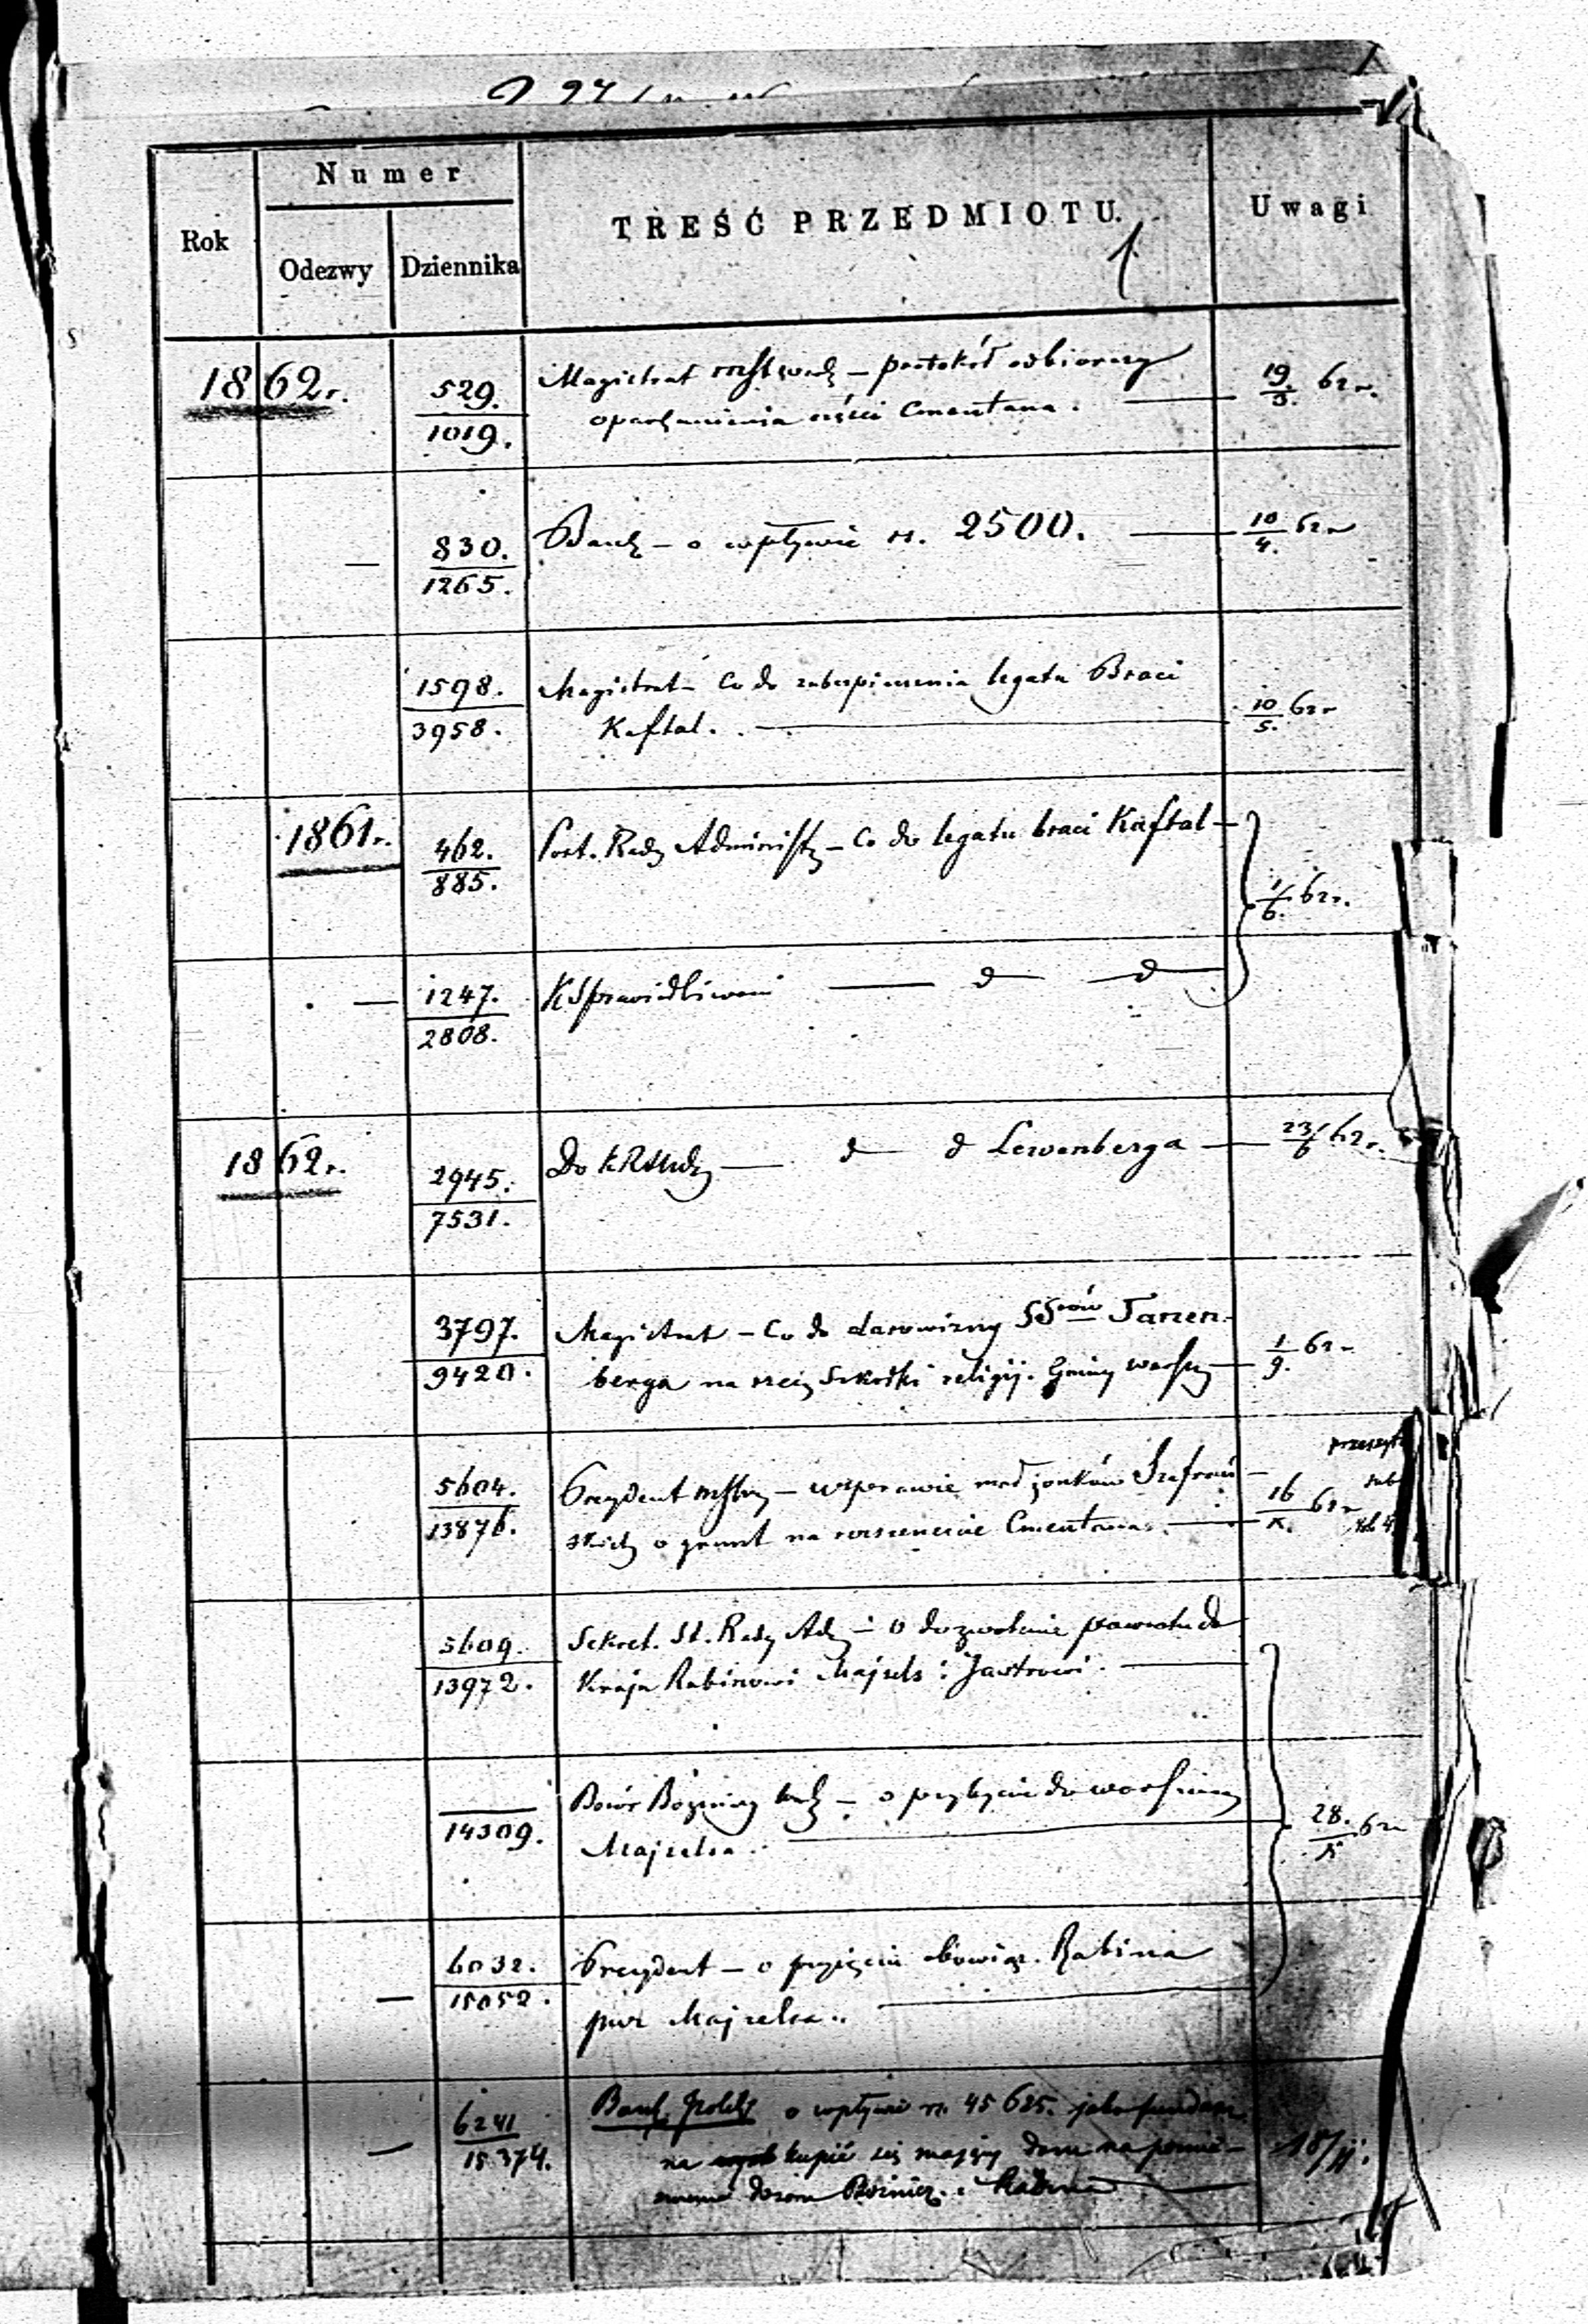 Numer
Rok
Odezwy
Dziennika
TREŚĆ PRZEDMIOTU.
Uwagi
1.
1862r.
529.
1019.
Magistrat — protokół odbiorczy
oparkanienia części Cmentarza.
19/5. 62 r.
—
830.
1265.
Bank — o wpływie rs. 2500.
10/4. 62 r
1598.
3958.
Magistrat — Co do zabespieczenia legatu Braci
Kaftal.
10/5. 62 r
1861r.
462.
885.
Rady Administ — Co do legatu braci Kaftal —
1/6. 62 r.
—
1247.
2808.
K Sprawiedliwości — d — d —
1862r.
2945.
7531.
Do — d — d Lewenberga —
23/6 62 r.
3797.
9420.
Magistrat — Co do darowizny SSrów Tanen-
berga na rzecz Szkółki religij. Gminy Warsz —
1/9. 62 r
5604.
13876.
Prezydent — w sprawie małżonków Szafrań-
skich o grunt na Cmentarza. —
16/X. 62 r
5609.
13972.
Sekret. St. Rady Ad — o dozwolenie powrotu do
Kraju Rabinowi Majzels i Jastrowi. —
14309.
Dozór Bóżniczy — o przybyciu do Warszawy
Majzelsa.
28./X 62 r
—
6032.
15052.
Prezydent — o przyjęciu obowiąz. Rabina
przez Majzelsa..
—
6241
15374.
Bank Polski o wpływie rs. 45625. jako fundusz
na kupić się mający dom na pomie-
Dozoru Bóżnicz. i Rabina —
18/II.